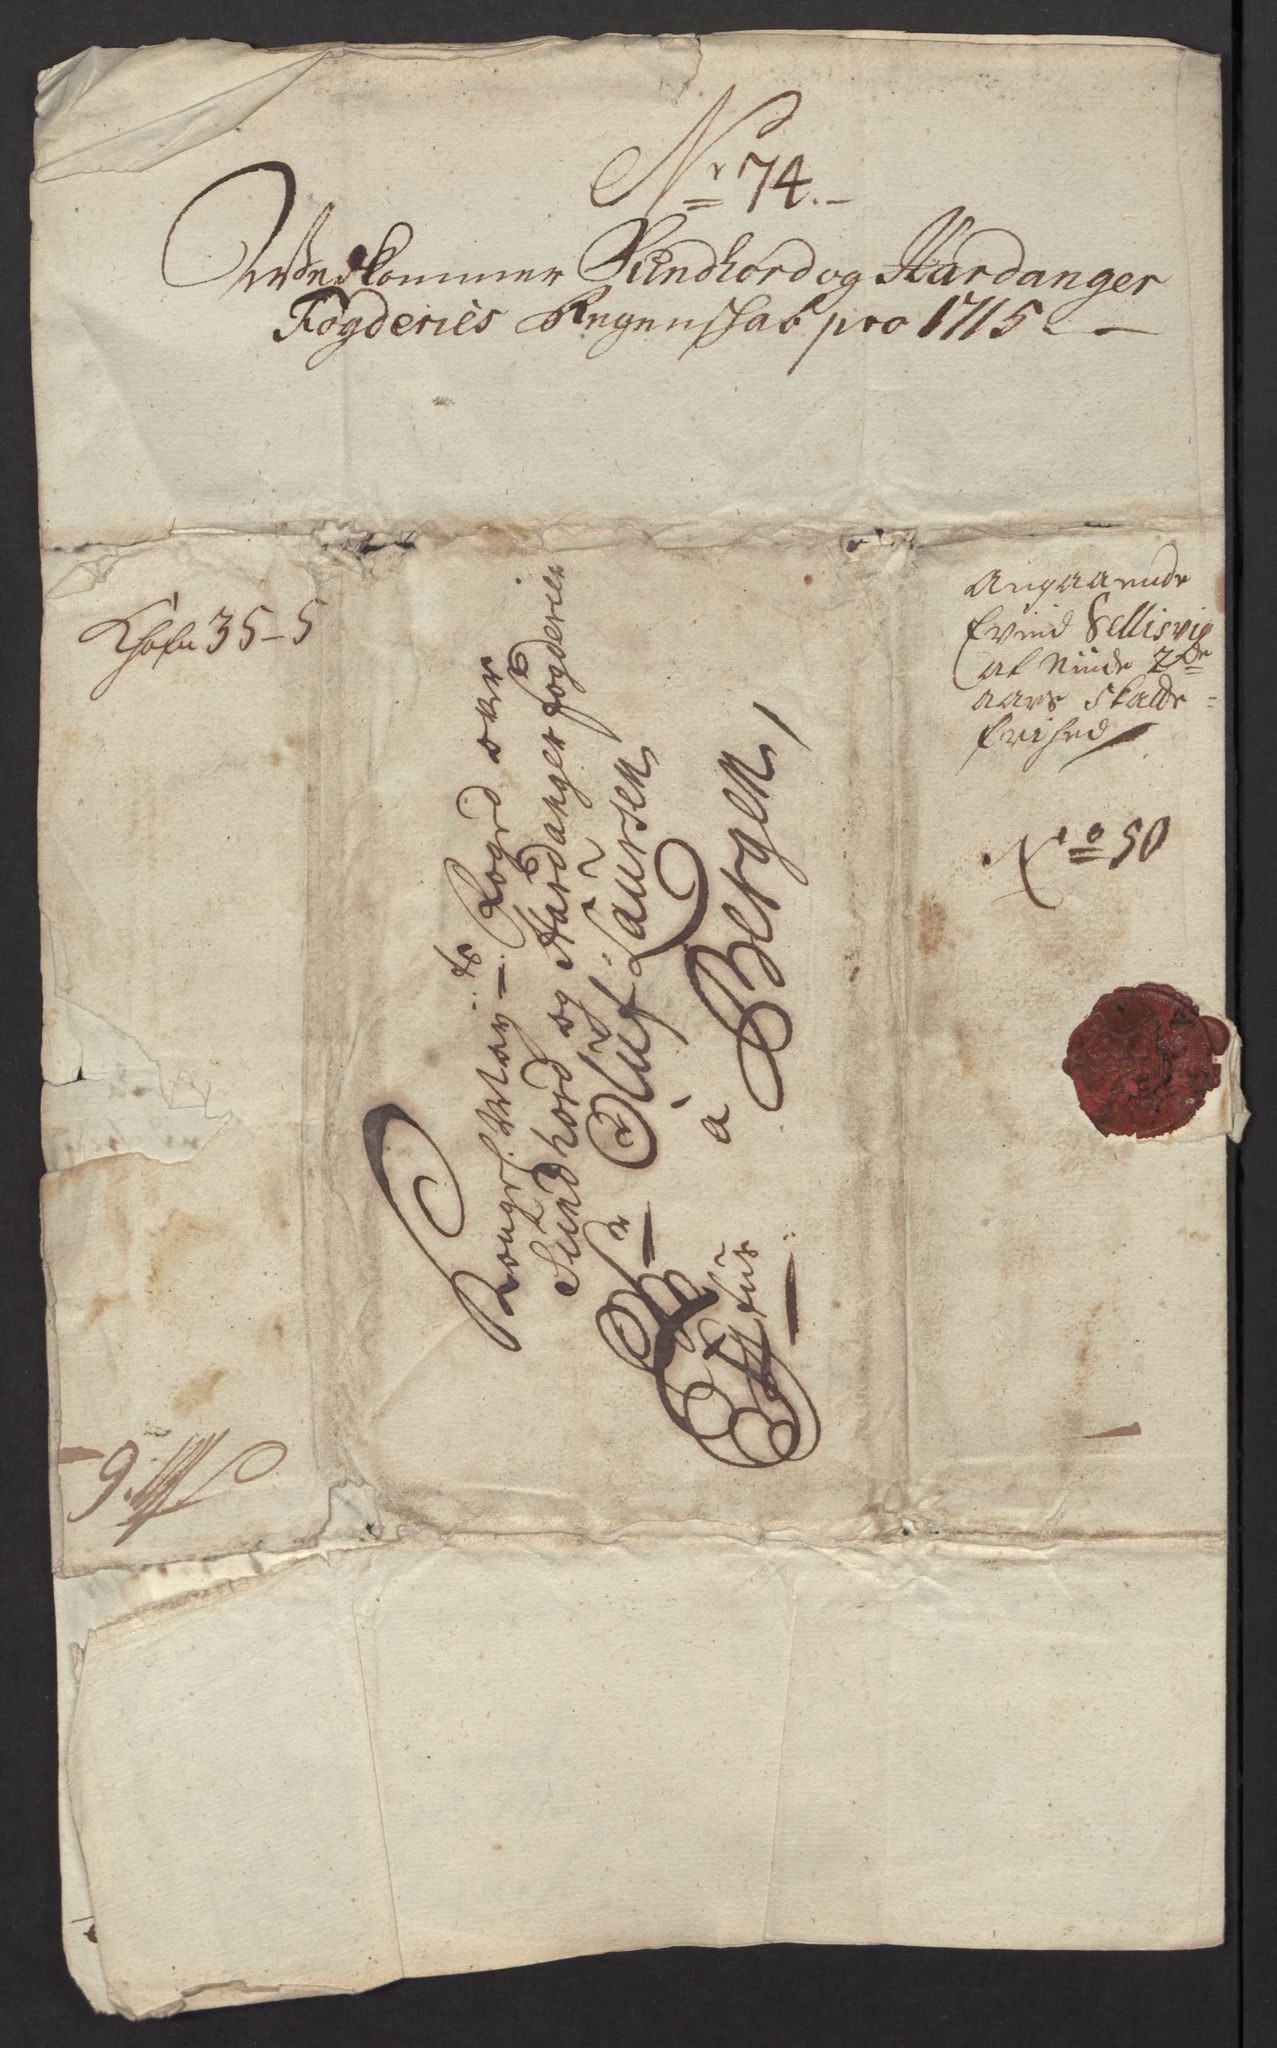 Nr 74.
Vedkommer Sundhord og Hardanger
Fogderies Regenskab pro 1715
Angaaende
Evind Sellisvig
at Niude 2de
aars Skatte-
frihed
No 50
35-5
Kongl. May:ts Fogd over
Sundhord og Hardanger fogderier
Hr Oluf Laursen
à
Bergen
9.